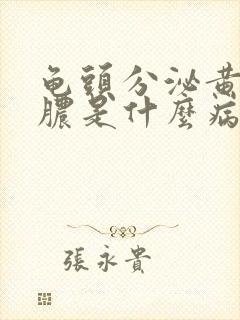 龟頭分泌黄
膿是什麼病
張永貴